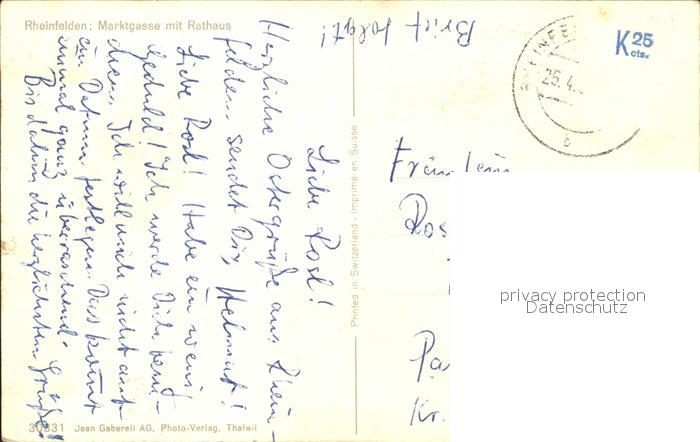 Rheinfelden: Marktgasse mit Rathaus
Brief folgt!
K 25
cts.
25.4.
b
Liebe Rosl!
Herzliche Ostergrüße aus Rhein-
felden sendet Dir, Helmut!
Liebe Rosl! Habe ein wenig
Geduld! Ich werde Dich
Ich will mich nicht auf
ein Datum festlegen. Das kommt
einmal ganz überraschend.
Bis dahin die herzlichsten Grüße!
Printed in Switzerland - Imprimé en Suisse
Fräulein
Ros
Pa
Kr.
privacy protection
Datenschutz
30931 Jean Gaberell AG, Photo-Verlag, Thalwil